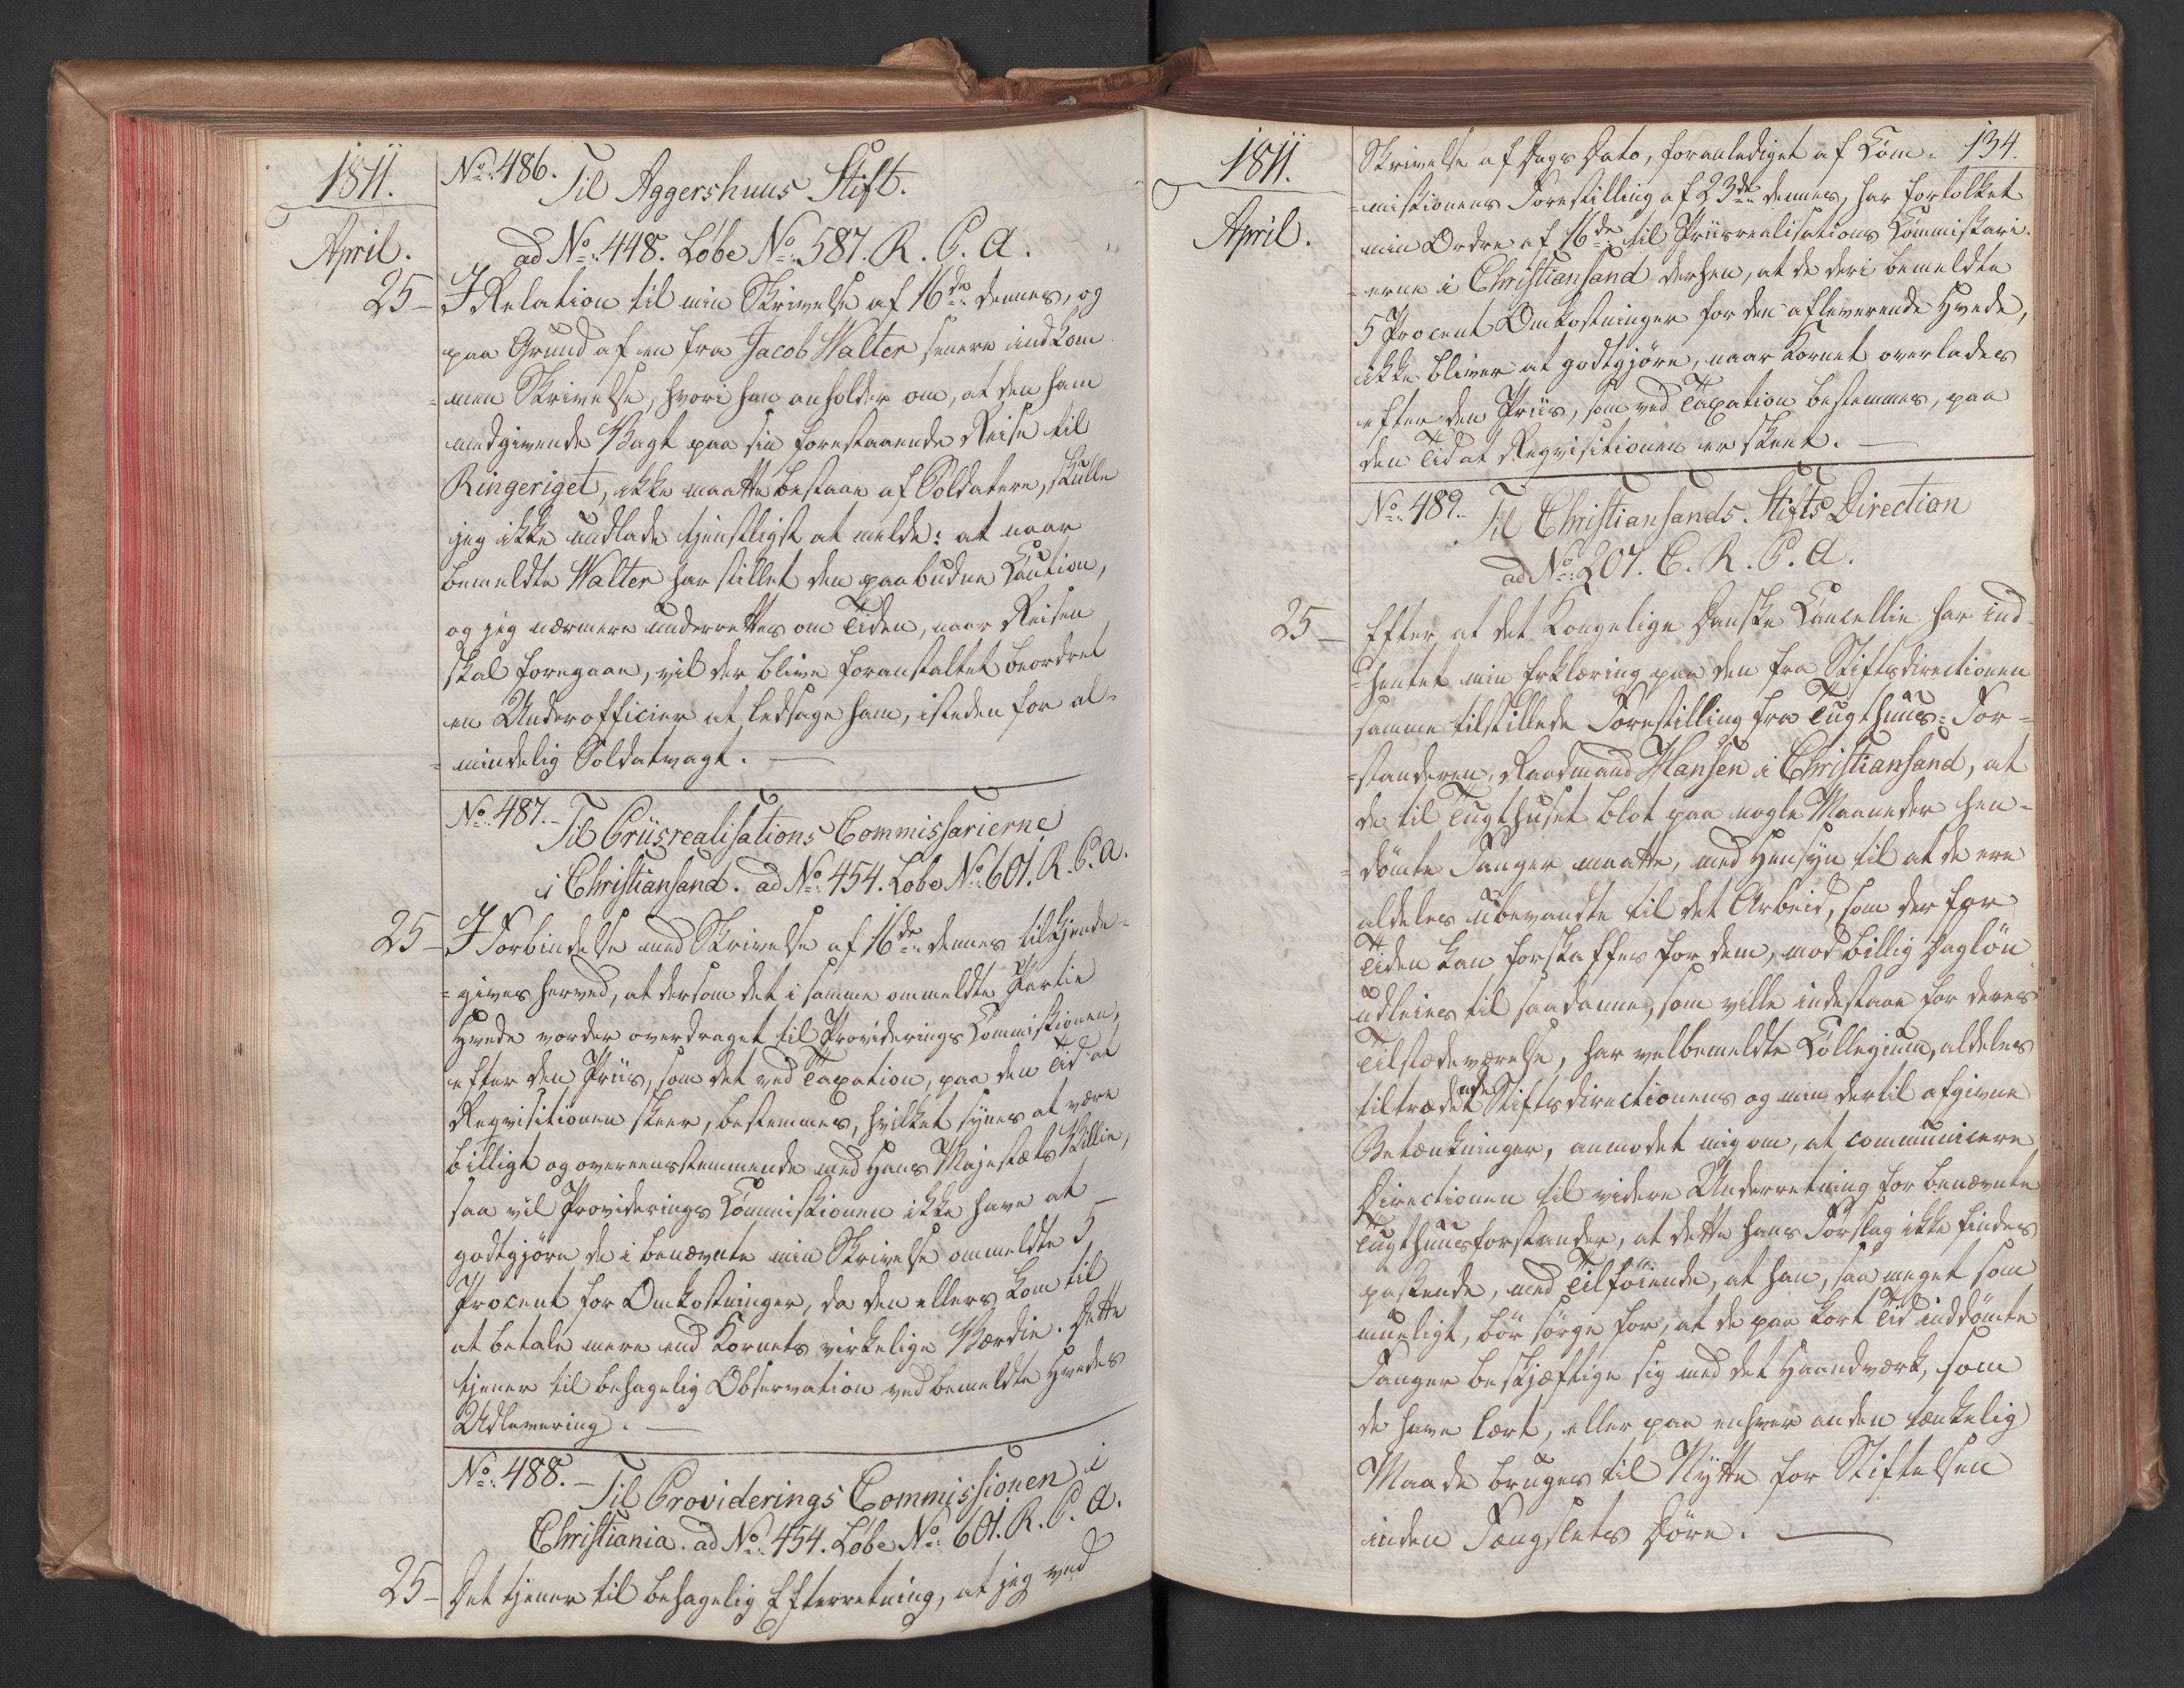 1811.
April.
No. 486.
Til Aggershuus Stift.
ad No. 448. Løbe No. 587. R. P. A.
25 – I Relation til min Skrivelse af 16de dennes, og
paa Grund af en fra Jacob Walter senere indkom
=men Skrivelse, hvori han anholder om, at den ham
medgivende Vagt paa sin forestaaende Reise til
Ringeriget, ikke maatte bestaae af Soldatere, skulle
jeg ikke undlade tjenstligst at melde: at naar
bemeldte Walter har stillet den paabudne Caution,
og jeg nærmere underrettes om Tiden, naar Reisen
skal foregaae, vil der blive foranstaltet beordret
en Underofficier at ledsage ham, isteden for al=
=mindelig Soldatvagt. —
No. 487. –
Til Priisrealisations Commissarierne
i Christiansand. ad No. 454. Løbe No. 601. R. P. A.
25 – I Forbindelse med Skrivelse af 16de dennes tilkjende=
=gives herved, at dersom det i samme ommeldte Partie
Hvede vorder overdraget til Providerings Commissionen,
efter den Priis, som det ved Taxation, paa den Tid at
Reqvisitionen skeer, bestemmes, hvilket synes at være
billigt og overeensstemmende med Hans Majestæts Villie,
saa vil Providerings Commissionen ikke have at
godtgjøre de i benævnte min Skrivelse ommeldte 5
Procent for Omkostninger, da den ellers kom til
at betale mere end Kornets virkelige Værdie. Dette
tjener til behagelig Observation ved bemeldte Hvedes
Udlevering. —
No. 488. –
Til Providerings Commissionen i
Christiania. ad No. 454. Løbe No. 601. R. P. A.
25 – Det tjener til behagelig Efterretning, at jeg ved
1811.
April.
134.
Skrivelse af Dags Dato, foranlediget af Com=
=missionens Forestilling af 23de dennes, har fortolket
min Ordre af 16de til Priisrealisations Commissari=
=erne i Christiansand derhen, at de deri bemeldte
5 Procent Omkostninger for den afleverende Hvede,
ikke bliver at godtgjøre, naar Kornet overlades
efter den Priis, som ved Taxation bestemmes, paa
den Tid at Reqvisitionen er skeet. —
No. 489. –
Til Christiansands Stifts Direction
ad No. 207. C. R. P. A.
25 – Efter at det Kongelige Danske Cancellie har ind=
=hentet min Erklæring paa den fra Stiftsdirectionen
samme tilstillede Forestilling fra Tugthuus=For=
=standeren, Raadmand Hansen i Christiansand, at
de til Tugthuset blot paa nogle Maaneder hen=
=dømte Fanger maatte, med Hensyn til at de ere
aldeles ubevandte til det Arbeid, som der for
Tiden kan forskaffes for dem, mod billig Dagløn
udleies til saadanne, som ville indestaae for deres
Tilstædeværelse, har velbemeldte Collegium, aldeles
tiltrædende Stiftsdirectionens og min dertil afgivne
Betænkninger, anmodet mig om, at communicere
Directionen til videre Underretning for benævnte
Tugthuusforstander, at dette hans Forslag ikke findes
passende, med Tilføiende, at han, saa meget som
mueligt, bør sørge for, at de paa kort Tid inddømte
Fanger beskjæftige sig med det Haandværk, som
de have lært, eller paa enhver anden tænkelig
Maade bruges til Nytte for Stiftelsen
inden Fængslets Døre. —